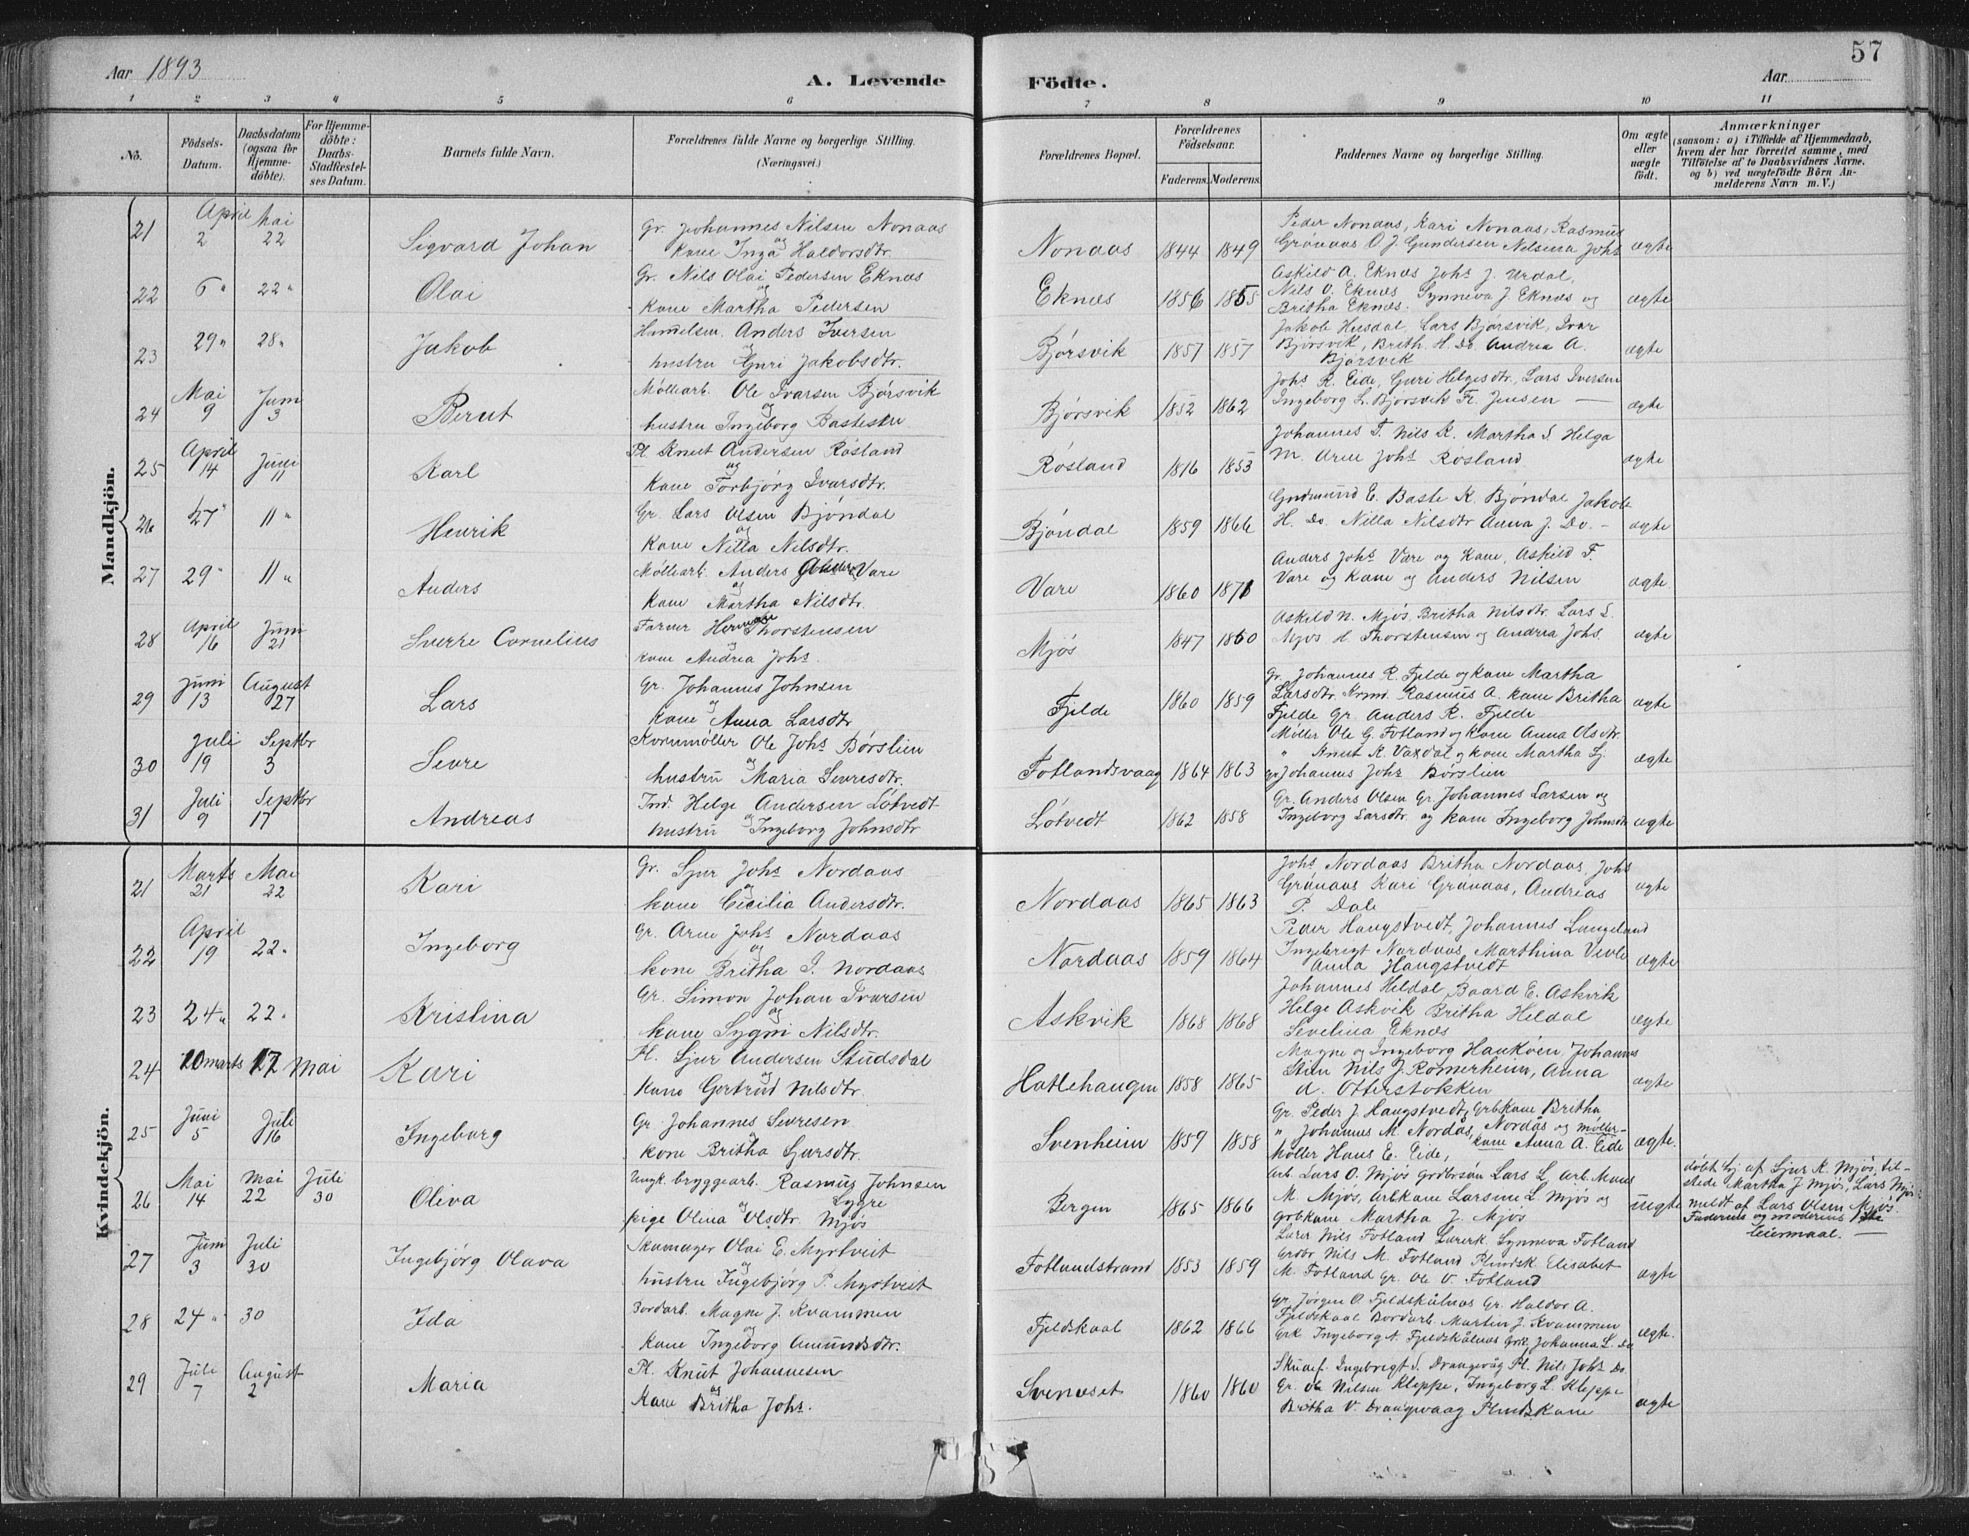 57
Aar 1893
A. Levende
Födte.
Aar
1 2 3 4 5 6 7 8 9 10 11
No.
Födsels-
Datum.
Daabsdatum
(ogsaa for
Hjemme-
döbte).
For Hjemme-
döbte:
Daabs-
Stadfæstel-
ses Datum.
Barnets fulde Navn.
Forældrenes fulde Navne og borgerlige Stilling.
(Næringsvei.)
Forældrenes Bopæl.
Forældrenes
Födselsaar.
Faderens. Moderens.
Faddernes Navne og borgerlige Stilling.
Om ægte
eller
uægte
födt.
Anmærkninger
(saasom: a) i Tilfælde af Hjemmedaab,
hvem der har forrettet samme, med
Tilföielse af to Daabsvidners Navne,
og b) ved uægtefödte Börn An-
melderens Navn m. V.)
Mandkjön.
21 April 2 Mai 22 Sigvard Johan Gr. Johannes Nilsen Nonaas
og Kone Inga Haldorsdtr. Nonaas 1844 1849 Peder Nonaas, Kari Nonaas, Rasmus
Grønaas O J. Gundersen Nelsina Johs ægte
22 6 " 22 " Olai Gr. Nils Olai Pedersen Eknæs
og Kone Martha Pedersen Eknæs 1856 1855 Askild A. Eknæs Johs J. Urdal,
Nils O. Eknæs Synneva J Eknæs og
Britha Eknæs. ægte
23 29 " 28 " Jakob Anders Iversen
og hustru Guri Jakobsdtr. Bjørsvik 1857 1857 Jakob Husdal, Lars Bjørsvik, Ivar
Bjørsvik, Brith. H. Do. Andrea A.
Bjørsvik ægte
24 Mai 9 Juni 3 Bernt Møllearb. Ole Ivarsen Bjørsvik
og hustru Ingeborg Bjørsvik 1852 1862 Johs R. Eide, Guri Helgesdtr, Lars Iversen
Ingeborg L. Bjørsvik Fr. Jensen — ægte
25 April 14 Juni 11 Karl Pl. Knut Andersen Røsland
og Kone Torbjørg Ivarsdtr. Røsland 1816 1853 Johannes T. Nils K. Martha S. Helga
M. Arne Johs Røsland ægte
26 27 " 11 " Henrik Gr. Lars Olsen Bjøndal
og Kone Nilla Nilsdtr. Bjøndal 1859 1866 Gudmund E. Baste K. Bjøndal Jakob
H. Do. Nilla Nilsdtr Anna J. Do. - ægte
27 29 " 11 " Anders Møllearb. Anders Vare
og Kone Martha Nilsdtr. Vare 1860 1871 Anders Johs Vare og Kone, Askild F.
Vare og Kone og Anders Nilsen ægte
28 April 16 Juni 21 Sverre Cornelius Farver Herman Thorstensen
og Kone Andrea Johs. Mjøs 1847 1860 Askild N. Mjøs Britha Nilsdtr. Lars S.
Mjøs H. Thorstensen og Andrea Johs. ægte
29 Juni 13 August 27 Lars Gr. Johannes Johnsen
og Kone Anna Larsdtr Fjelde 1860 1859 Gr. Johannes R. Fjelde og Kone Martha
Larsdtr Krm. Rasmus A. Kone Britha
Fjelde Gr. Anders R. Fjelde ægte
30 Juli 19 Septbr 3 Sevre Kornmøller Ole Johs Børslien
og hustru Maria Sevresdtr. Fotlandsvaag 1864 1863 Møller Ole G. Fotland og Kone Anna Olsdtr.
" Knut K. Vaxdal og Kone Martha Lj.
gr Johannes Johs Børslien ægte
31 Juli 9 Septbr 17 Andreas Ind. Helge Andersen Løtvedt
hustru og Ingeborg Johnsdtr Løtvedt 1862 1858 Gr. Anders Olsen Gr Johannes Larsen og
Ingeborg Larsdtr. og Kone Ingeborg Johnsdtr ægte
Kvindekjön.
21 Marts 21 Mai 22 Kari Gr. Sjur Johs Nordaas
og Kone Cecilia Andersdtr. Nordaas 1865 1863 Johs Nordaas Britha Nordaas, Johs
Grønaas Kari Grønaas, Andreas
P. Dale ægte
22 April 19 22 " Ingeborg Gr. Arne Johs Nordaas
og Kone Britha I. Nordaas Nordaas 1859 1864 Peder Haugstvedt, Johannes Langeland
Ingebregt Nordaas, Marthina Vevle
Anna Haugstvedt ægte
23 24 " 22 " Kristina Gr. Simon Johan Ivarsen
og Kone Sygni Nilsdtr. Askvik 1868 1868 Johannes Heldal, Baard E. Askvik
Helge Askvik Britha Heldal
Sevelina Eknæs ægte
24 10 marts 17 Mai Kari Pl. Sjur Andersen Studsdal
og Kone Gertrud Nilsdtr. Hatlehaugen 1858 1865 Magne og Ingeborg Haukøen, Johannes
Stien Nils J. Rømerheim, Anna
A. Otterstokken ægte
25 Juni 5 Juli 16 Ingeborg Gr. Johannes Sevresen
og Kone Britha Sjursdtr. Svenheim 1859 1858 Gr. Peder J. Haugstvedt, Grbkone Britha
" Johannes M. Nordås, Nordås og møller-
Møller Hans E. Eide, kone Anna A. Eide ægte.
26 Mai 14 Mai 22 Juli 30 Oliva Ungk. bryggearb. Rasmus Johnsen
Lygre
og pige Olina Olsdtr. Mjøs Bergen 1865 1866 Arb. Lars O. Mjøs Grdbrsøn Lars L, arb. Mons
M. Mjøs, Arbkone Larsine L. Mjøs og
Grbkone Martha J. Mjøs uægte døbt hj af Sjur K. Mjøs, til-
stede Martha J Mjøs, Lars Mjøs
meldt af Lars Olsen Mjøs
Faderens og moderens 1ste
leiermaal. —
27 Juni 3 Juli 30 Ingebjørg Olava Skomager Olai E. Myrtveit
og hustru Ingebjørg P. Myrtveit Fotlandstrand 1853 1859 Lærer Nils Fotland Lærerk. Synneva Fotland
Grdbr. Nils M. Fotland Plmdsk. Elisabet
M. Fotland Gr. Ole V. Fotland ægte
28 24 " 30 Ida Bordarb. Magne J. Kvammen
og Kone Ingeborg Amundsdtr. Fjeldskaal 1862 1866 Gr. Jørgen O. Fjeldskålnæs Gr. Haldor A.
Fjeldskaal Bordarb. Martin J. Kvammen
Grk Ingeborg A. Fjeldskålnæs Grk, Johanna L. Do ægte.
29 Juli 7 August 2 Maria Pl. Knut Johannesen
og Kone Britha Johs. Svenæset 1860 1860 Skudef. Ingebregt S. Drangevåg Pl. Nils Johs Do.
Gr. Ole Nilsen Kleppe, Ingeborg L. Kleppe
Britha V. Drangevaag Plmdskone ægte